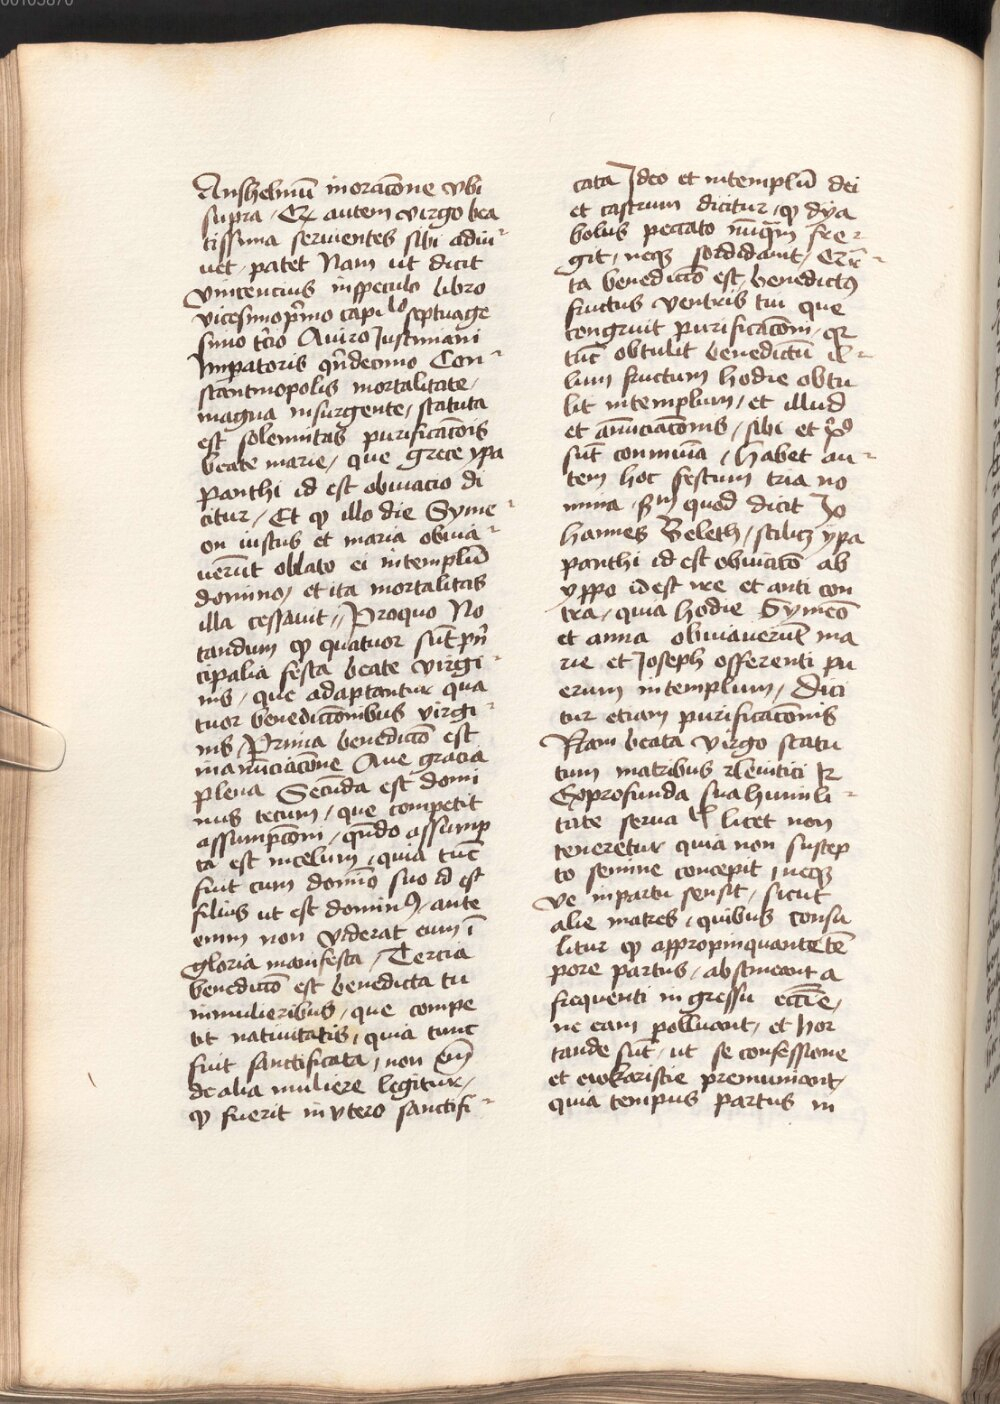 00103870
Anshelmū in oracōne vbi
supra / Qr autem virgo bea
tissima seruientes sibi adiu-
uet / patet Nam ut dicit
Vincencius in speculo libro
vicesimopͥmo capiᵗᵒ septuage
simo tc̄io Anno Justiniani
Impatoris qn̄decimo Con-
stantinopolis mortalitate /
magna insurgente / statuta
est solemnitas purificacōis
beate marie / que grece ypa
panthi id est obuiacio di
citur / Et qꝫ illo die Syme-
on iustus et maria obuia-
uerūt oblato ei in templū
domino / et ita mortalitas
illa cessauit // Pro quo No
tandum qꝫ quatuor sūt prī
cipalia festa beate virgi-
nis / que adaptantur qua
tuor benedictōnibus virgi-
nis / Prima benedictō est
in anūciacōne Aue gracia
plena Secūda est domi
nus tecum / que competit
assumpcōni / qn̄do assump
ta est in celum / quia tūc
fuit cum domīo suo id est
filius ut est dominꝰ / ante
enim non viderat eum ī
gloria manifesta / Tercia
benedictō est benedicta tu
in mulieribus / que compe
tit natiuitatis / quia tunc
fuit sanctificata / non em̄
de alia muliere legitur /
qꝫ fuerit in vtero sanctifi-
cata Ideo et in templū dei
et castrum dicitur / qꝫ dya
bolus peccato nūqꝫm fre-
git / neqꝫ sordidauit / Qr̄-
ta benedictō est / benedictꝰ
fructus ventris tui que
congruit purificacōni / qꝛ
tūc obtulit benedictū il-
lum fructum hodie obtu
lit in templum / et illud
et anūciacōnis / sibi et xp̄o
sūt communia / Habet au-
tem hoc festum tria no
mina / sm̄ quod dicit Jo
hannes Beleth / scilicꝫ ypa
panthi id est obuiacō ab
yppo id est ire et anti con
tra / quia hodie Symeō
et anna obuiauerūt ma
rie et Joseph offerenti pu
erum in templum / Dici
tur etiam purificacōnis
Nam beata virgo statu
tum matribus Leuitici
Ex profunda sua humili-
tate serua licet non
teneretur quia non suscep
to semine concepit / neqꝫ
ve in partu sensit / sicut
alie matres / quibus consu
litur qꝫ appropinquante tē
pore partus / abstineant a
frequenti ingressu ecc̄ie /
ne eam polluant / et hor
tande sūt / ut se confessione
et ewkaristie premuniant /
quia tempus partus in